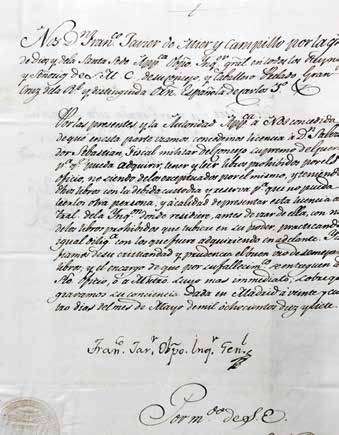 Nos Dn. Franco. Javier de Mier y Campillo por la gra.
de Dios y de la Santa Sede App.ca Obpo Inqor. gral. en todos los Reynos
y Señorios de S. M. C. de su consejo y Caballero Prelado Gran
Cruz de la Rl. y distinguida Orn. Española de Carlos 3º &
Por las presentes y la Autoridad App.ca a Nos concedida
de que en esta parte usamos, concedemos licencia a Dn. Salva
dor Sebastian, Fiscal militar del consejo supremo de la guerra
pa. qe. pueda adquirir, tener y leer libros prohibidos por el Sto
oficio, no siendo de los exceptuados por el mismo, y teniendo
dhos libros con la debida custodia y reserva pa. que no pueda
leerlos otra persona, y a calidad de presentar esta licencia al
tral. de la Inqon. donde residiere, antes de usar de ella, con nota
de los libros prohibidos que tubiere en su poder, practicando
igual diliga. con los que fuere adquiriendo en adelante.
famos de su cristiandad y prudencia el buen uso de semejantes
libros, y el encargo de que por su fallecimto. se entreguen al
Sto. Oficio, ó á Mtro. suyo mas inmediato, sobre que
gravamos su conciencia. Dada en Madrid á veinte y cua
tro dias del mes de Mayo de mil ochocientos diez y siete
Franco. Javr. Obpo. Inqr. Genl.
Por mdo. de S. E.